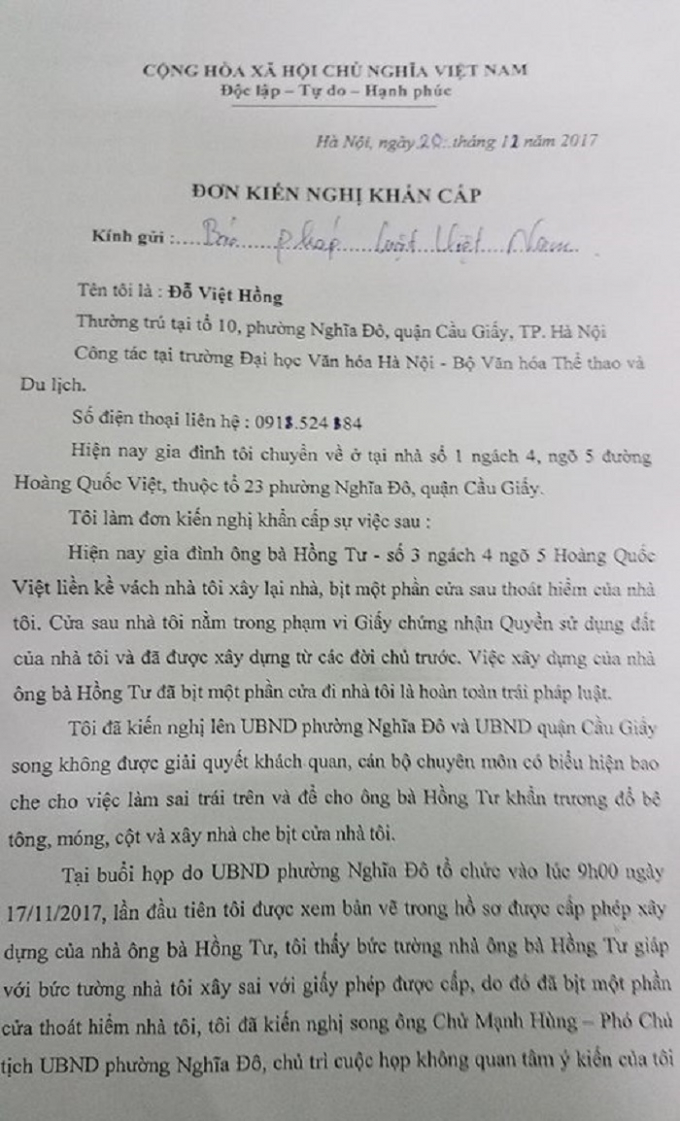 CỘNG HÒA XÃ HỘI CHỦ NGHĨA VIỆT NAM
Độc lập – Tự do – Hạnh phúc
Hà Nội, ngày 20 tháng 12 năm 2017
ĐƠN KIẾN NGHỊ KHẨN CẤP
Kính gửi :.... Báo pháp luật Việt Nam
Tên tôi là : Đỗ Việt Hồng
Thường trú tại tổ 10, phường Nghĩa Đô, quận Cầu Giấy, TP. Hà Nội
Công tác tại trường Đại học Văn hóa Hà Nội - Bộ Văn hóa Thể thao và
Du lịch.
Số điện thoại liên hệ :
Hiện nay gia đình tôi chuyển về ở tại nhà số 1 ngách 4, ngõ 5 đường
Hoàng Quốc Việt, thuộc tổ 23 phường Nghĩa Đô, quận Cầu Giấy.
Tôi làm đơn kiến nghị khẩn cấp sự việc sau :
Hiện nay gia đình ông bà Hồng Tư - số 3 ngách 4 ngõ 5 Hoàng Quốc
Việt liền kề vách nhà tôi xây lại nhà, bịt một phần cửa sau thoát hiểm của nhà
tôi. Cửa sau nhà tôi nằm trong phạm vi Giấy chứng nhận Quyền sử dụng đất
của nhà tôi và đã được xây dựng từ các đời chủ trước. Việc xây dựng của nhà
ông bà Hồng Tư đã bịt một phần cửa đi nhà tôi là hoàn toàn trái pháp luật.
Tôi đã kiến nghị lên UBND phường Nghĩa Đô và UBND quận Cầu Giấy
song không được giải quyết khách quan, cán bộ chuyên môn có biểu hiện bao
che cho việc làm sai trái trên và để cho ông bà Hồng Tư khẩn trương đổ bê
tông, móng, cột và xây nhà che bịt cửa nhà tôi.
Tại buổi họp do UBND phường Nghĩa Đô tổ chức vào lúc 9h00 ngày
17/11/2017, lần đầu tiên tôi được xem bản vẽ trong hồ sơ được cấp phép xây
dựng của nhà ông bà Hồng Tư, tôi thấy bức tường nhà ông bà Hồng Tư giáp
với bức tường nhà tôi xây sai với giấy phép được cấp, do đó đã bịt một phần
cửa thoát hiểm nhà tôi, tôi đã kiến nghị song ông Chử Mạnh Hùng – Phó Chủ
tịch UBND phường Nghĩa Đô, chủ trì cuộc họp không quan tâm ý kiến của tôi